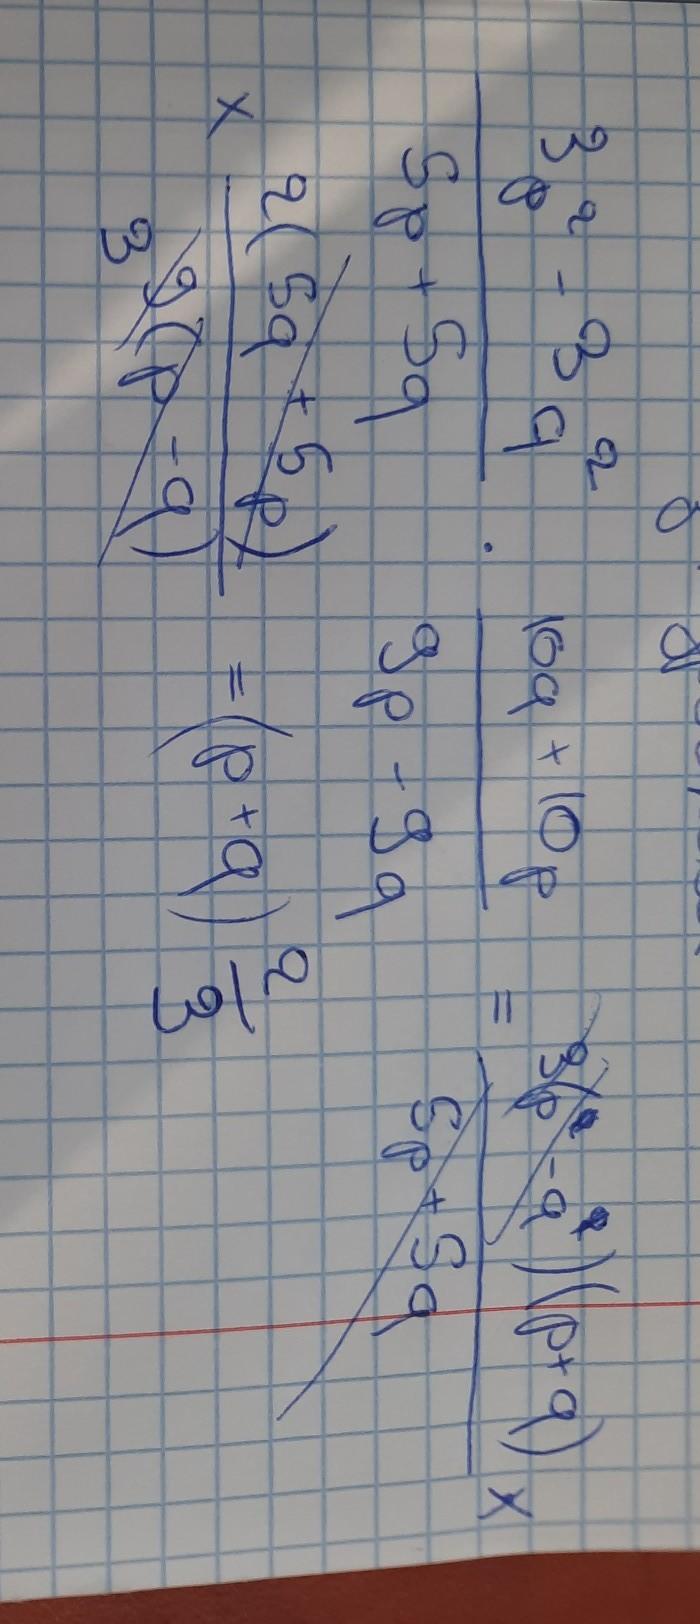 3p² - 3q² / 5p + 5q · 10q + 10p / 9p - 9q = 3(p - q)(p + q) / 5p + 5q ×
× 2(5q + 5p) / 3 9(p - q) = (p + q) 2/3